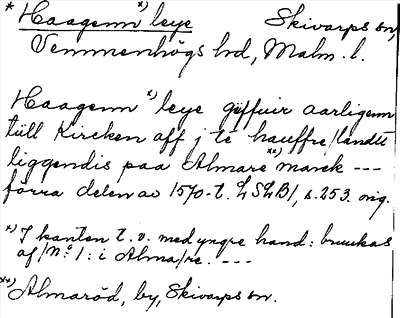 * Haagenn *) leye Skivarps sn,
Vemmenhögs hd, Malm. l.
Haagenn *) leye giffuir aarligenn
tiill Kircken aff j te hauffre/landtt
liggendis paa Almare **) marck ---
förra delen av 1570-t. LSLB1, s. 253. orig.
*) I kanten t. v. med yngre hand: bruukas
af/No 1: i Alma/re. ---
**) Almaröd, by, Skivarps sn.